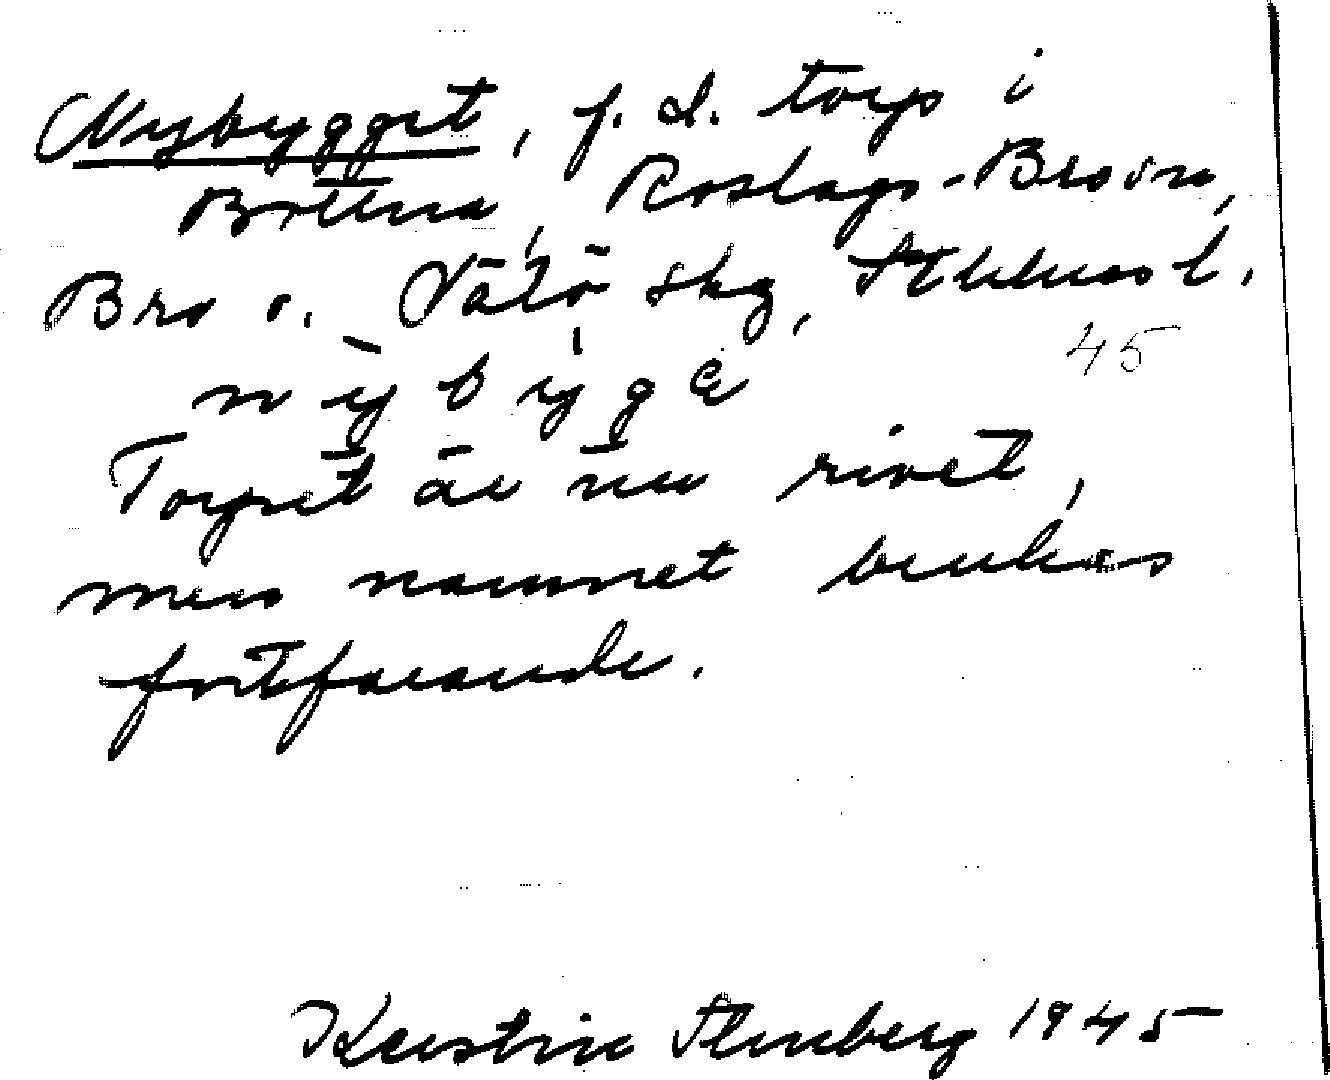 Nybygget, f. d. torp i
Bottna, Roslags-Bro sn,
Bro o. Vätö skg, Sthlms l.
45
nỳbýgə
Torpet är nu rivet,
men namnet brukas
fortfarande.
Kerstin Stenberg 1945